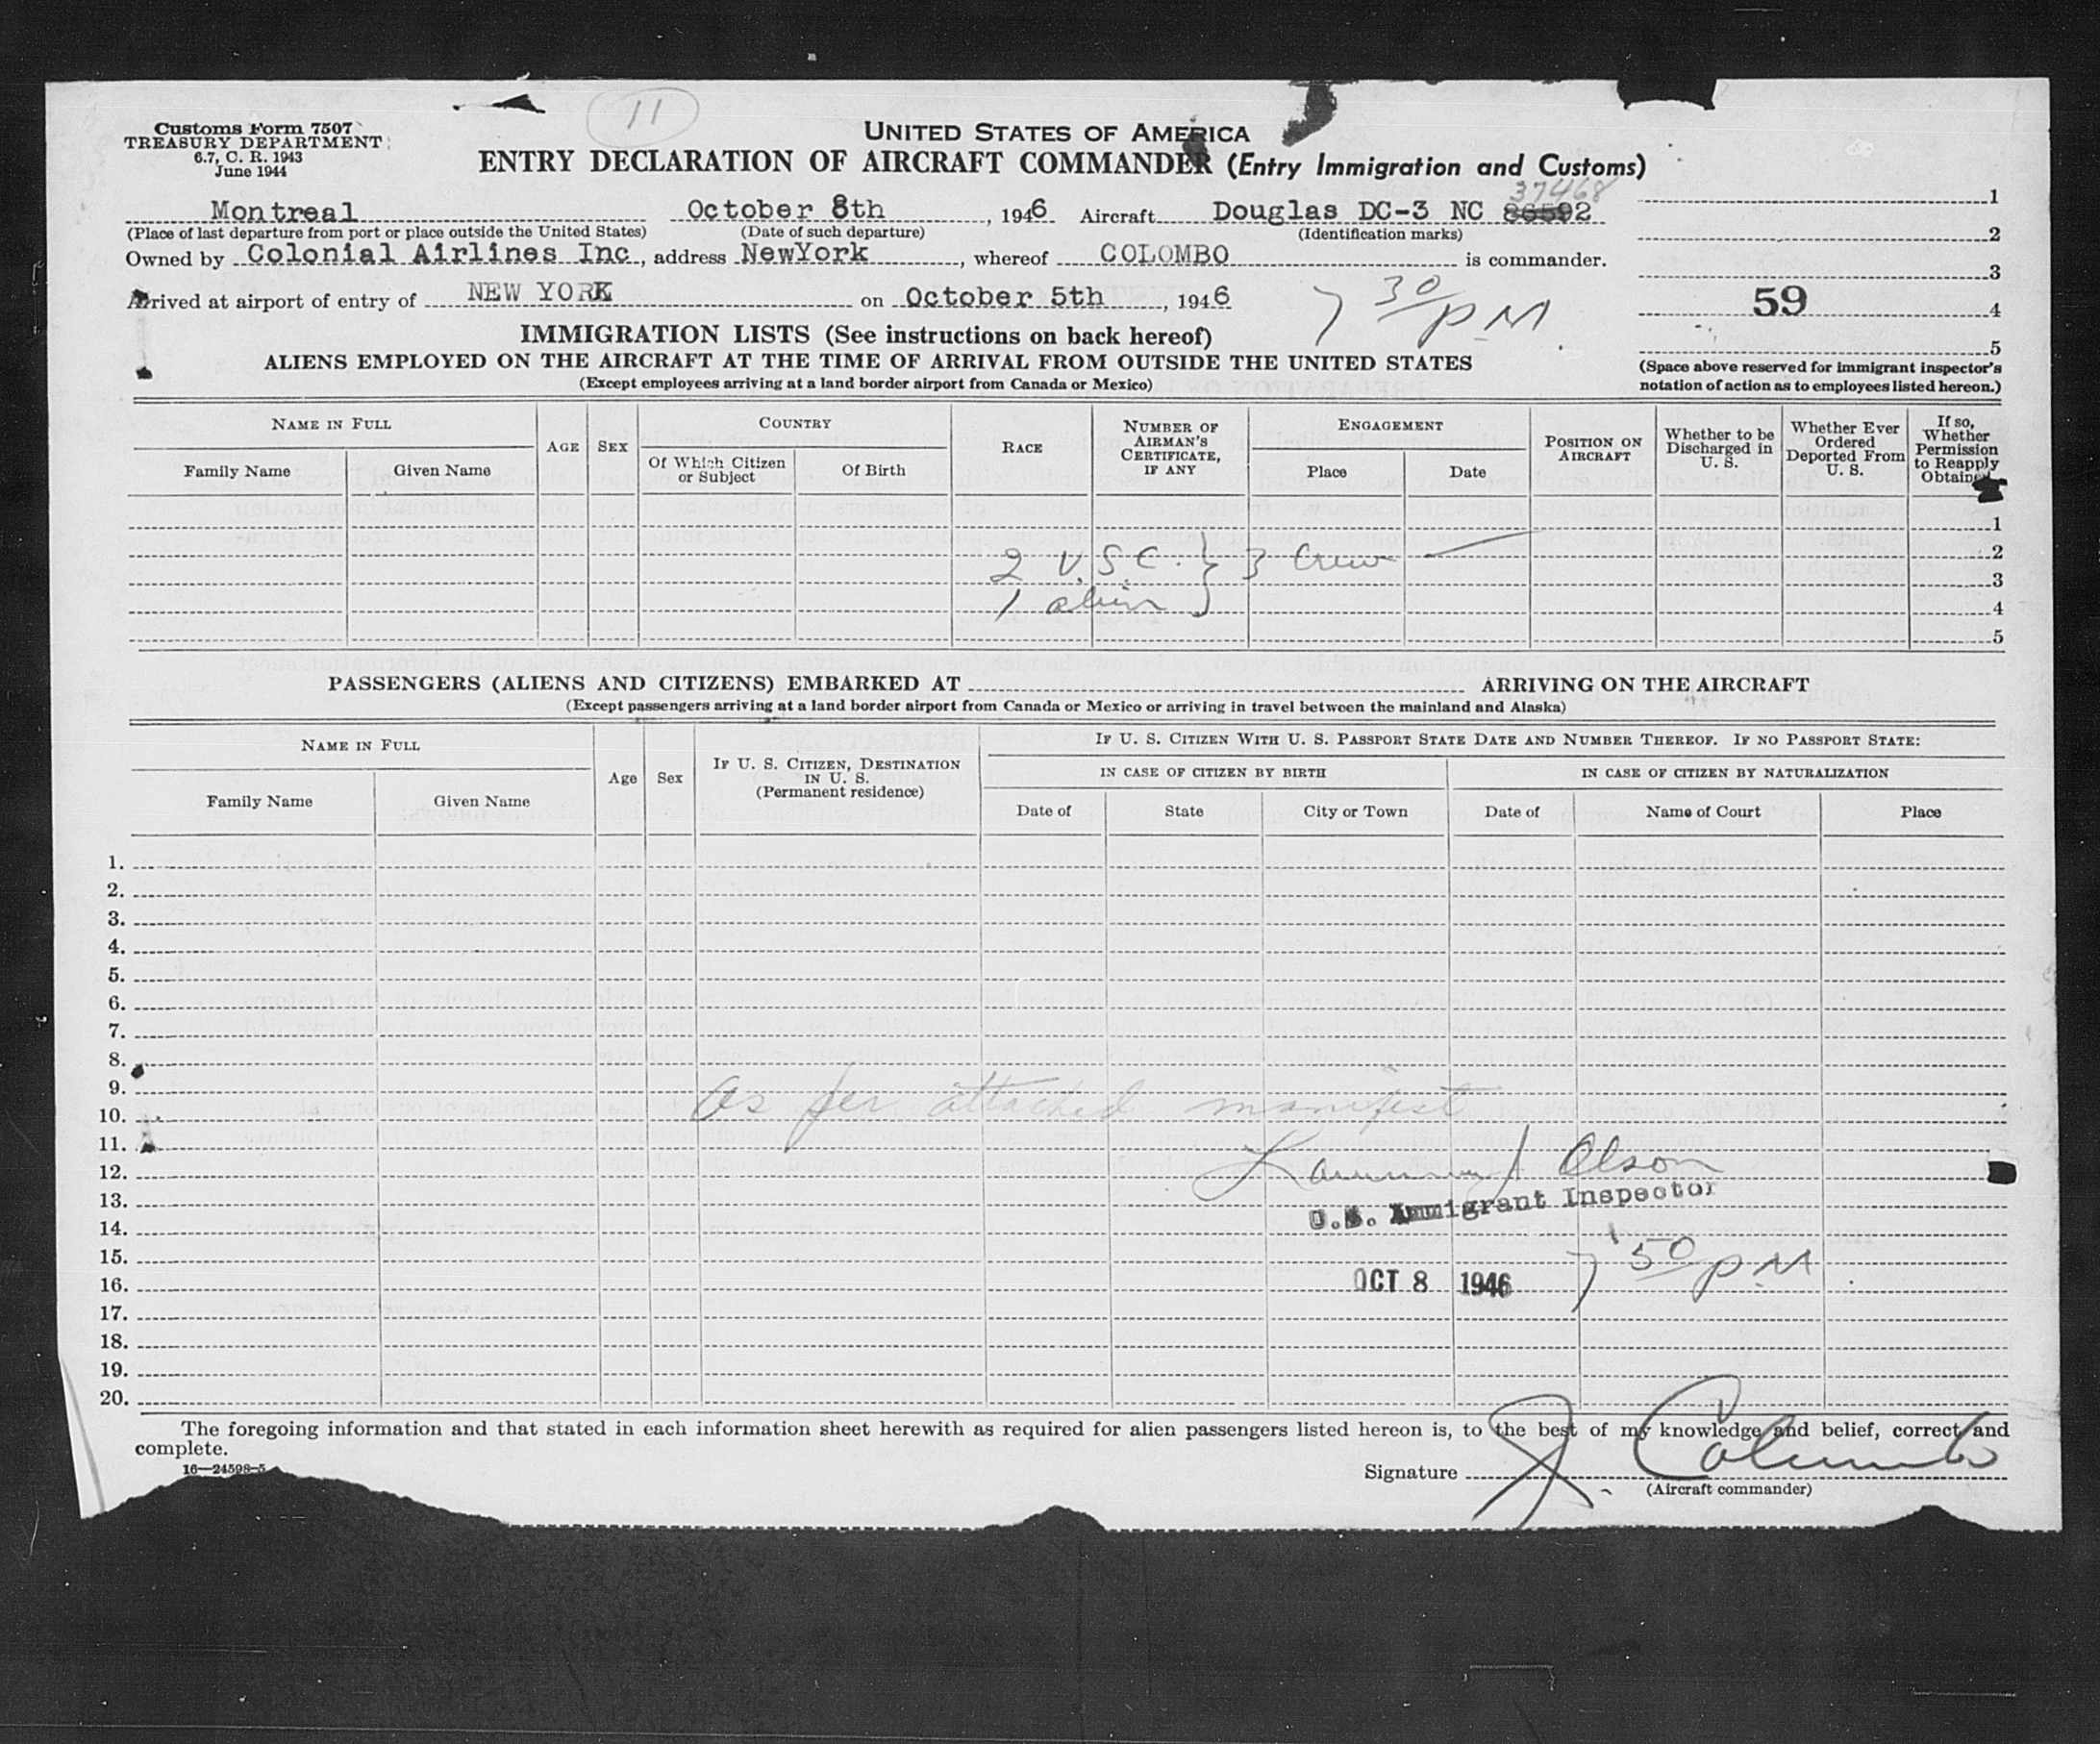 11
Customs Form 7507
TREASURY DEPARTMENT
6.7, C. R. 1943
June 1944
UNITED STATES OF AMERICA
ENTRY DECLARATION OF AIRCRAFT COMMANDER (Entry Immigration and Customs)
37468
Montreal October 8th, 1946 Aircraft Douglas DC-3 NC 86592
(Place of last departure from port or place outside the United States) (Date of such departure) (Identification marks)
Owned by Colonial Airlines Inc, address NewYork, whereof COLOMBO is commander.
Arrived at airport of entry of NEW YORK on October 5th, 1946 7 30 PM
1
2
3
59 4
5
(Space above reserved for immigrant inspector's
notation of action as to employees listed hereon.)
IMMIGRATION LISTS (See instructions on back hereof)
ALIENS EMPLOYED ON THE AIRCRAFT AT THE TIME OF ARRIVAL FROM OUTSIDE THE UNITED STATES
(Except employees arriving at a land border airport from Canada or Mexico)
NAME IN FULL
Family Name Given Name
AGE SEX
COUNTRY
Of Which Citizen
or Subject
Of Birth
RACE
NUMBER OF
AIRMAN'S
CERTIFICATE,
IF ANY
ENGAGEMENT
Place Date
POSITION ON
AIRCRAFT
Whether to be
Discharged in
U. S.
Whether Ever
Ordered
Deported From
U. S.
If so,
Whether
Permission
to Reapply
Obtained
1
2 U.S.C. } 3 Crew 2
3
1 alien 4
5
PASSENGERS (ALIENS AND CITIZENS) EMBARKED AT ARRIVING ON THE AIRCRAFT
(Except passengers arriving at a land border airport from Canada or Mexico or arriving in travel between the mainland and Alaska)
NAME IN FULL
Family Name Given Name
Age Sex
IF U. S. CITIZEN, DESTINATION
IN U. S.
(Permanent residence)
IF U. S. CITIZEN WITH U. S. PASSPORT STATE DATE AND NUMBER THEREOF. IF NO PASSPORT STATE:
IN CASE OF CITIZEN BY BIRTH IN CASE OF CITIZEN BY NATURALIZATION
Date of State City or Town Date of Name of Court Place
1.
2.
3.
4.
5.
6.
7.
8.
9.
10. as per attached manifest
11.
12. Olson
13. U.S. Immigrant Inspector
14.
15. 7 50 PM
16. OCT 8 1946
17.
18.
19.
20.
The foregoing information and that stated in each information sheet herewith as required for alien passengers listed hereon is, to the best of my knowledge and belief, correct and
complete.
16—24598-5
Signature J. Colombo
(Aircraft commander)